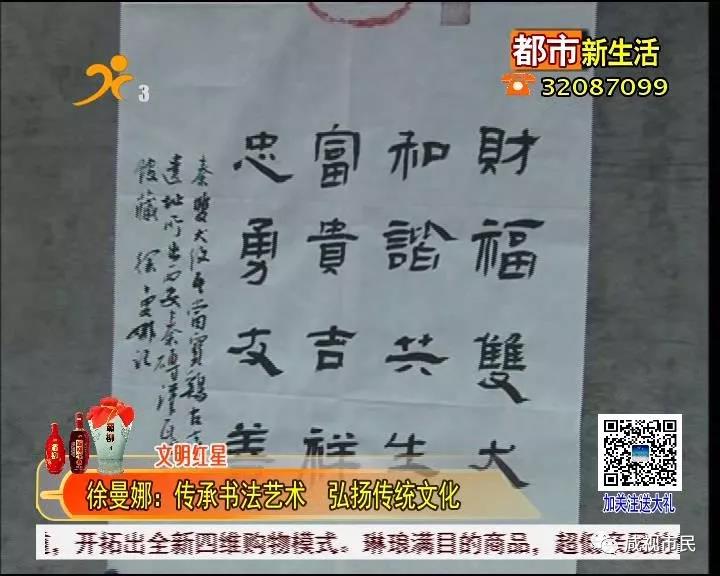 都市新生活
32087099
3
財福雙犬
和諧共生
富貴吉祥
忠勇友善
秦雙犬
遺址所出西安秦磚漢瓦
館藏 徐曼娜記
文明红星
徐曼娜：传承书法艺术 弘扬传统文化
加关注送大礼
，开拓出全新四维购物模式。琳琅满目的商品，超低
咸视市民